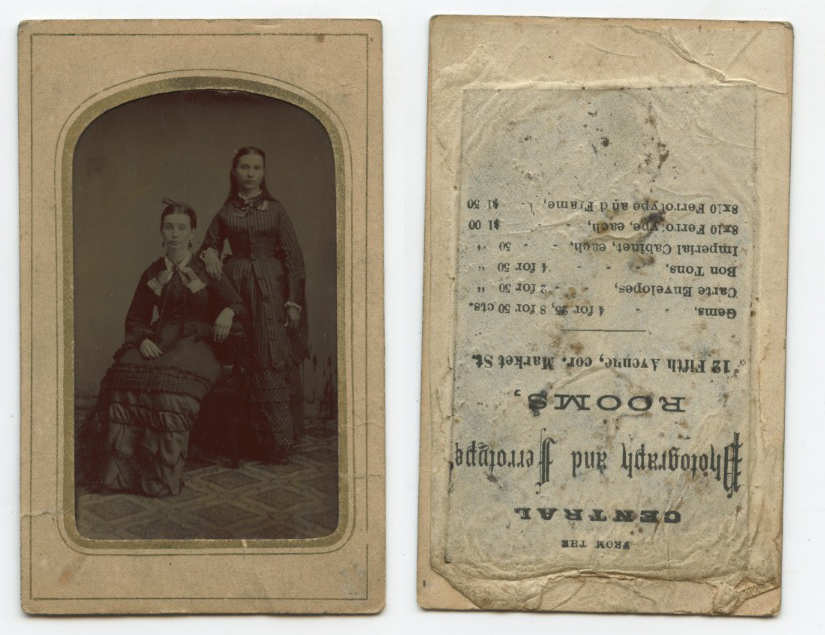 FROM THE
CENTRAL
Photograph and Ferrotype
ROOMS,
12 Fifth Avenue, cor. Market St.
Gems, - - 4 for 25, 8 for 50 cts.
Carte Envelopes, - - 2 for 50 "
Bon Tons, - - - 4 for 50 "
Imperial Cabinet, each, - - 50 "
8x10 Ferrotype, each, - - $1 00
8x10 Ferrotype and Frame, - $1 50